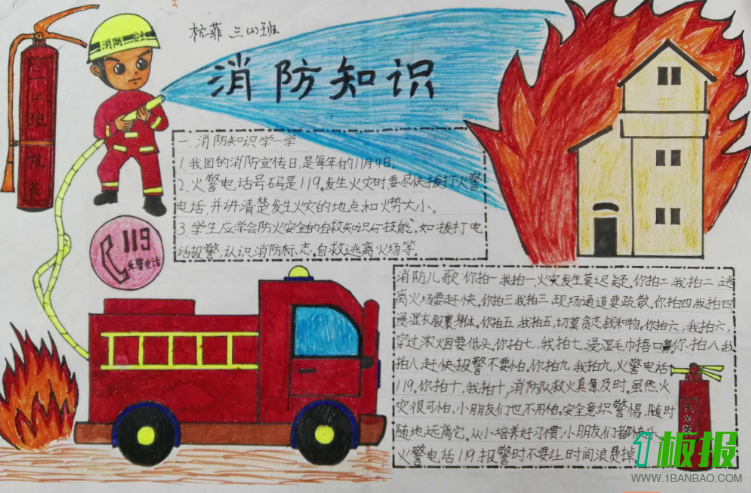 杭菲 三(4)班
消防知识
消防 安全
一、消防知识学一学
1.我国的消防宣传日是每年的11月9日。
2.火警电话号码是119,发生火灾时要尽快拨打火警
电话,并讲清楚发生火灾的地点和火势大小。
3.学生应学会防火安全的自救知识和技能。如拨打电
话报警,认识消防标志、自救逃离火场等。
119
火警电话
消防儿歌你拍一我拍一火灾发生莫迟疑.你拍二,我拍二逃
离火场要赶快.你拍三我拍三现场通道要疏散.你拍四我拍四
浸湿衣服裹身体.你拍五,我拍五,切莫贪恋钱和物.你拍六,我拍六,
穿过浓烟要低头.你拍七,我拍七,浸湿毛巾捂口鼻你拍八我
拍八赶快报警不要怕.你拍九我拍九,火警电话
119.你拍十,我拍十,消防队救火真及时.虽然火
灾很可怕,小朋友们也不用怕.安全意识警惕,随时
随地远离它,从小培养好习惯,小朋友们
火警电话119,报警时不要让时间浪费掉
板报
WWW.1BANBAO.COM